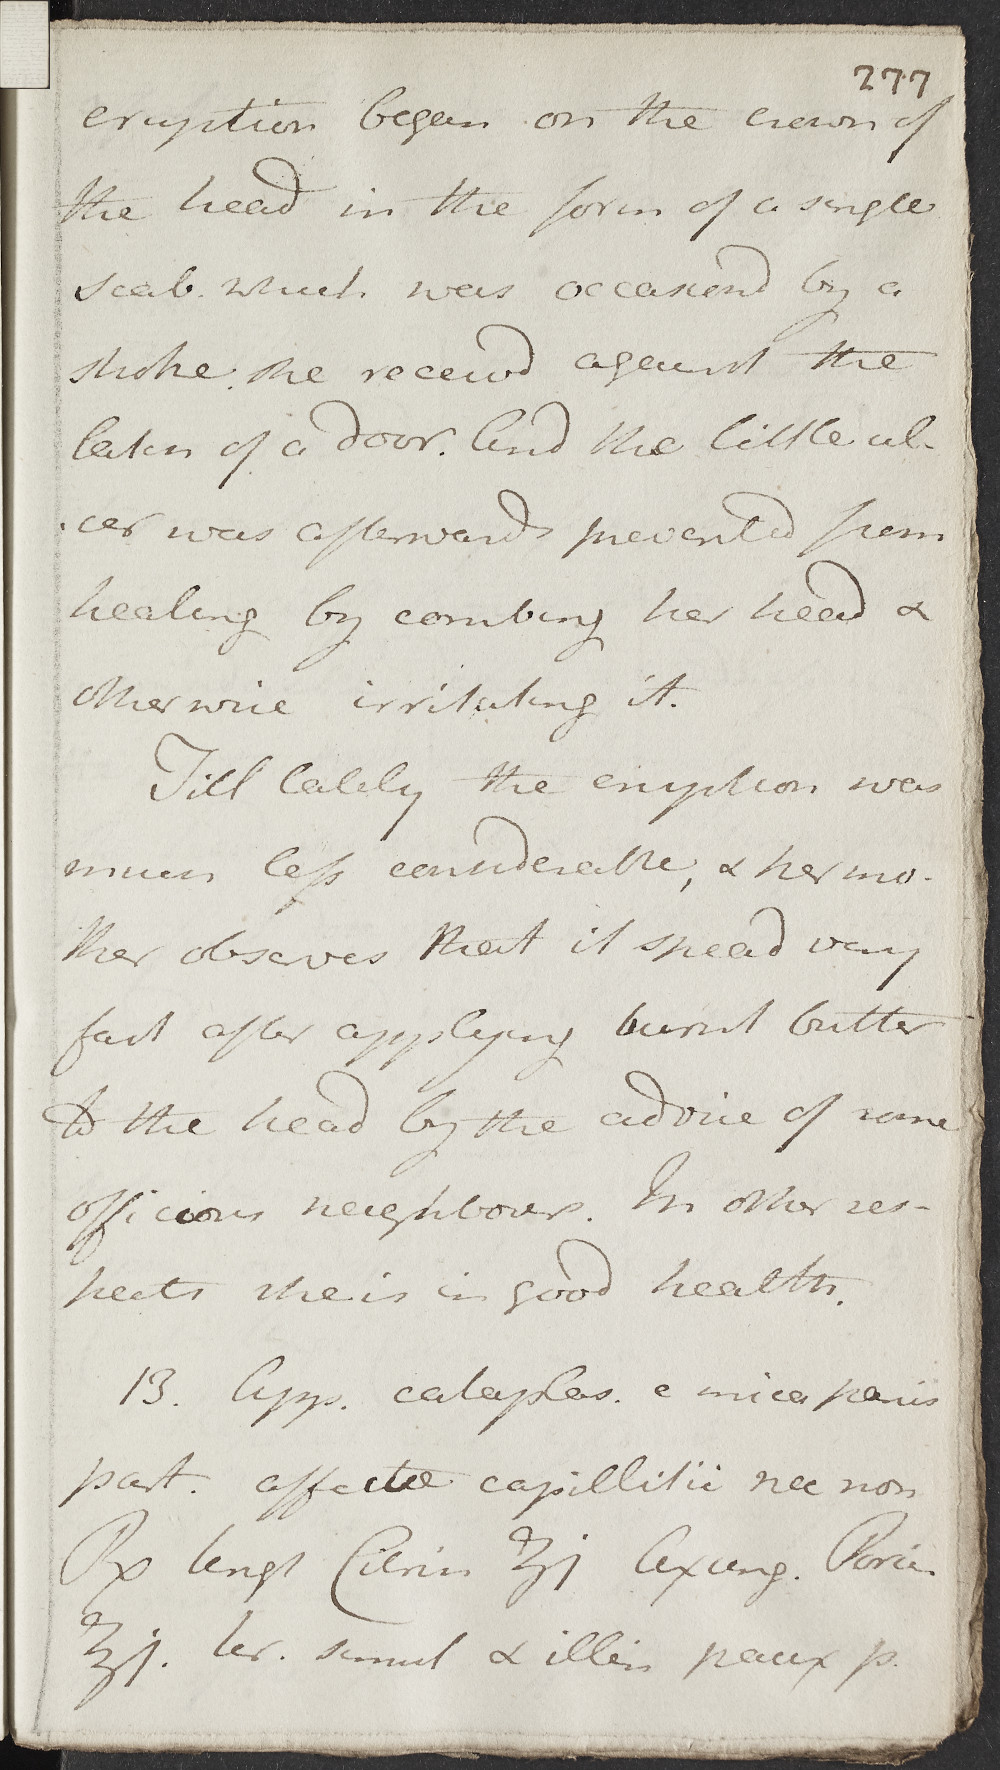 277
eruption began on the crown of
the head in the form of a single
scab. which was occasiond by a
stroke. she receivd against the
latch of a door. And the little ul-
-cer was afterwards prevented from
healing by combing her head &
otherwise irritating it.
Till lately the eruption was
much less considerable, & her mo-
ther observes that it spread very
fast after applying burnt butter
to the head by the advice of some
officious neighbours. In other res-
pects she is in good health.
13. App. cataplas. e mica panis
part. affectæ capillitii nec non
Rx Ungt Citrin ʒj Axung. Porcin
ʒj. ter. simul & illin paux p.